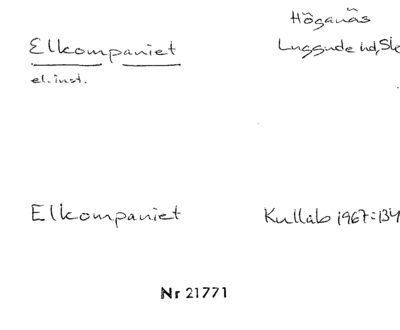 Höganäs
Elkompaniet
Luggude hd, Sk
el. inst.
Elkompaniet
Kullab 1967:134
Nr 21771